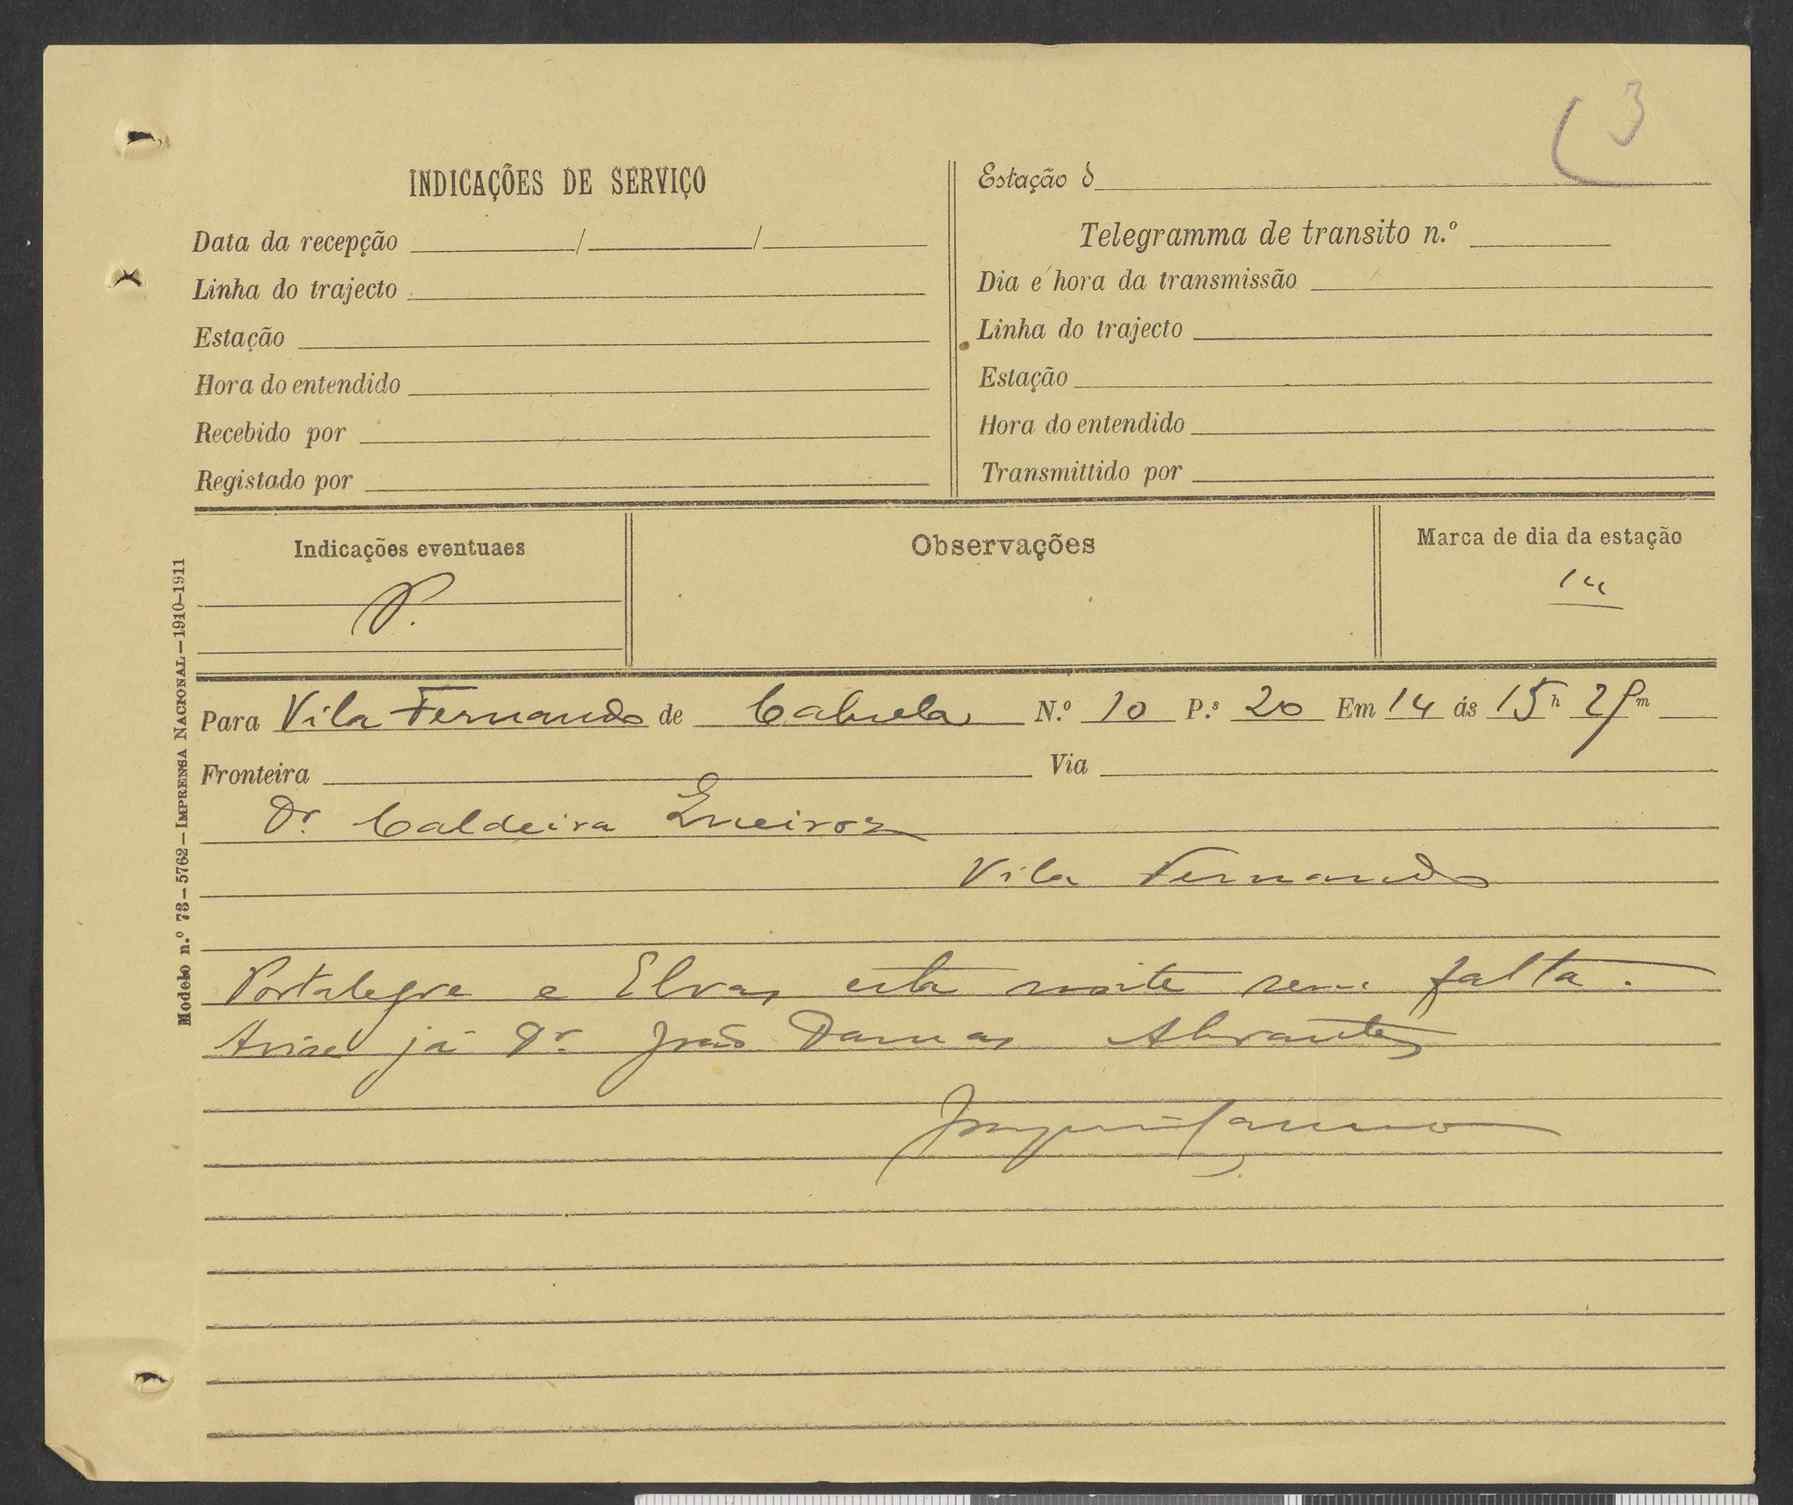 3
INDICAÇÕES DE SERVIÇO
Data da recepção / /
Linha do trajecto
Estação
Hora do entendido
Recebido por
Registado por
Estação d
Telegramma de transito n.º
Dia e hora da transmissão
Linha do trajecto
Estação
Hora do entendido
Transmittido por
Indicações eventuaes
P.
Observações
Marca de dia da estação
14
Modelo n.º 73—5762—IMPRENSA NACIONAL—1910-1911
Para Vila Fernando de N.º 10 P.s 20 Em 14 ás 15 h 25 m
Fronteira Via
Dr. Caldeira Queiroz
Vila Fernando
Portalegre e Elvas esta noite sem falta.
Avise já Dr. João Damas Abrantes